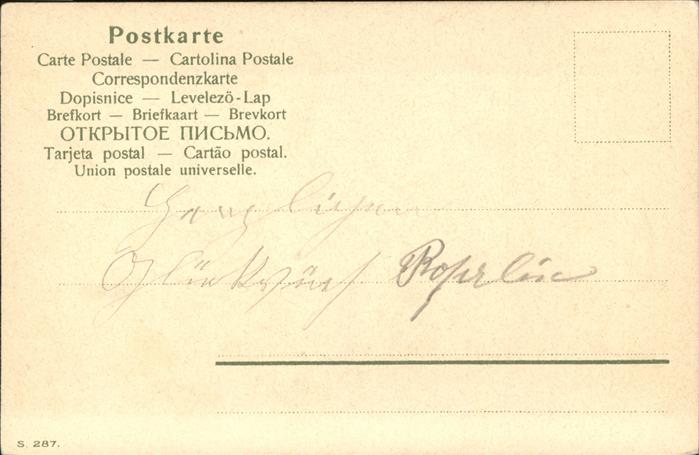 Postkarte
Carte Postale — Cartolina Postale
Correspondenzkarte
Dopisnice — Levelező-Lap
Brefkort — Briefkaart — Brevkort
ОТКРЫТОЕ ПИСЬМО.
Tarjeta postal — Cartão postal.
Union postale universelle.
S. 287.